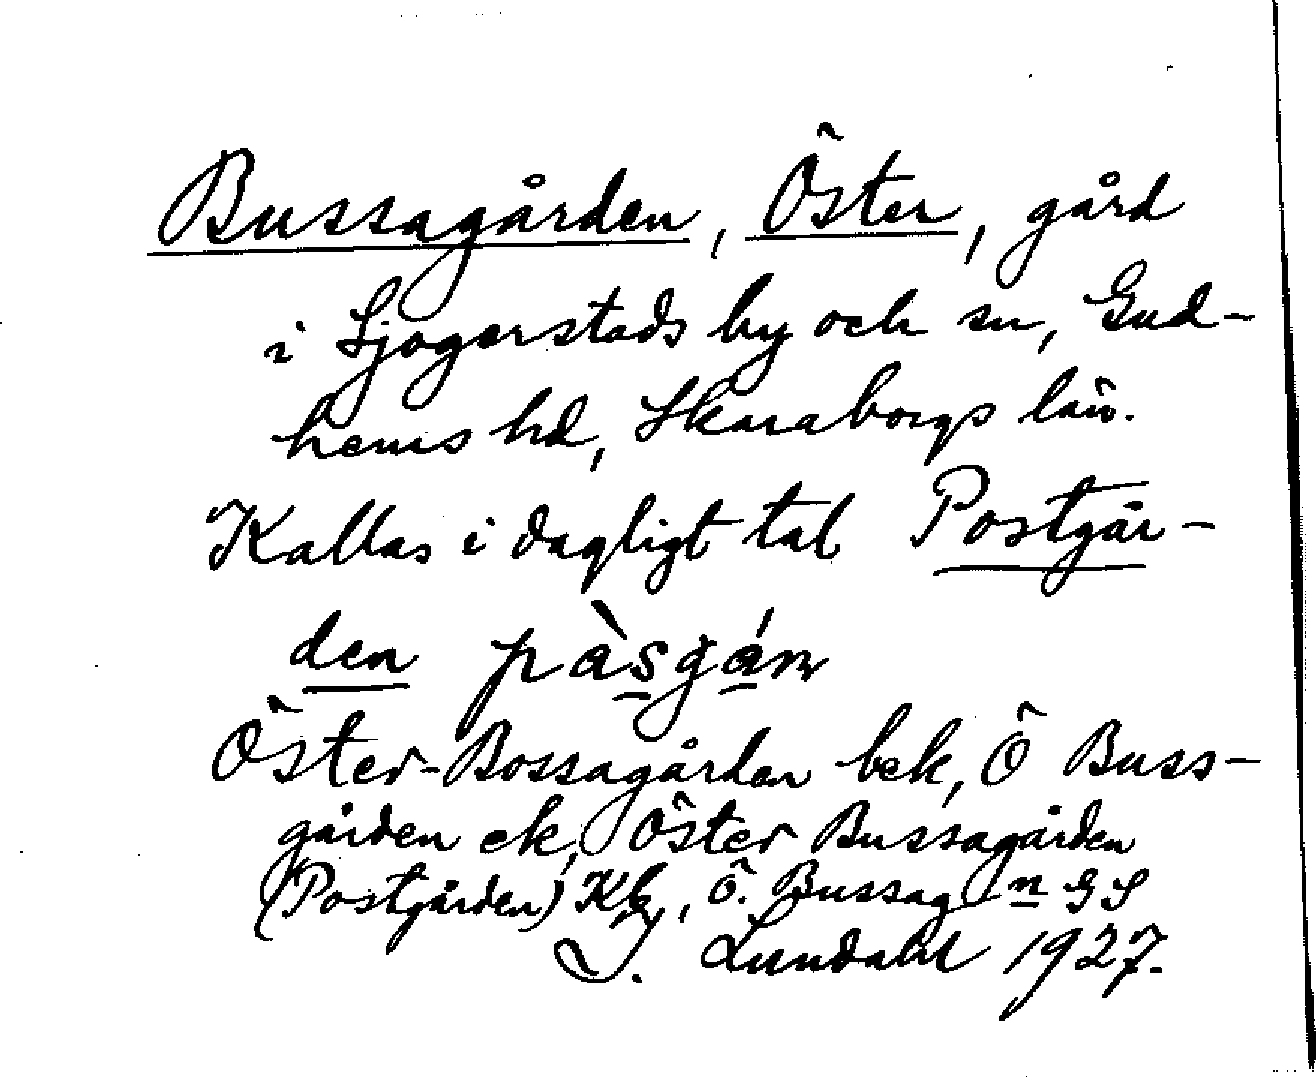 Bussagården, Öster, gård
i Sjogerstads by och sn, Gud-
hems hd, Skaraborgs län.
Kallas i dagligt tal Postgår-
den pàsgán
Öster-Bossagården bek, Ö Buss-
gården ek, Öster Bussagården
(Postgården) Kb, Ö. Bussag n GS
I. Lundahl 1927.